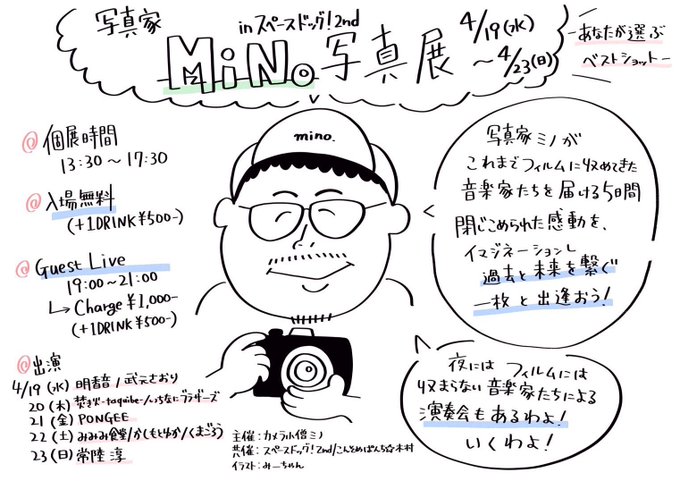 写真家
in スペースドッグ!2nd
MiNo 写真展
4/19(水)
～4/23(日)
-あなたが選ぶ
ベストショット-
mino.
@個展時間
13:30～17:30
@入場無料
(+1DRINK¥500-)
@Guest Live
19:00～21:00
↳Charge ¥1,000-
(+1DRINK¥500-)
@出演
4/19(水) 明香音/武元さおり
20(木) 焚き火-taquibe-/いっちなにブラザーズ
21(金) PONGEE
22(土) みみみ食堂/かしもとゆか/くまごろう
23(日) 常陸 淳
写真家ミノが
これまでフィルムに収めてきた
音楽家たちを届ける5日間
閉じこめられた感動を、
イマジネーションし
過去と未来を繋ぐ
一枚と出逢おう!
夜にはフィルムには
収まらない音楽家たちによる
演奏会もあるわよ!
いくわよ!
主催:カメラ小僧ミノ
共催:スペースドッグ!2nd/こんそめぱんち☆木村
イラスト:みーちゃん